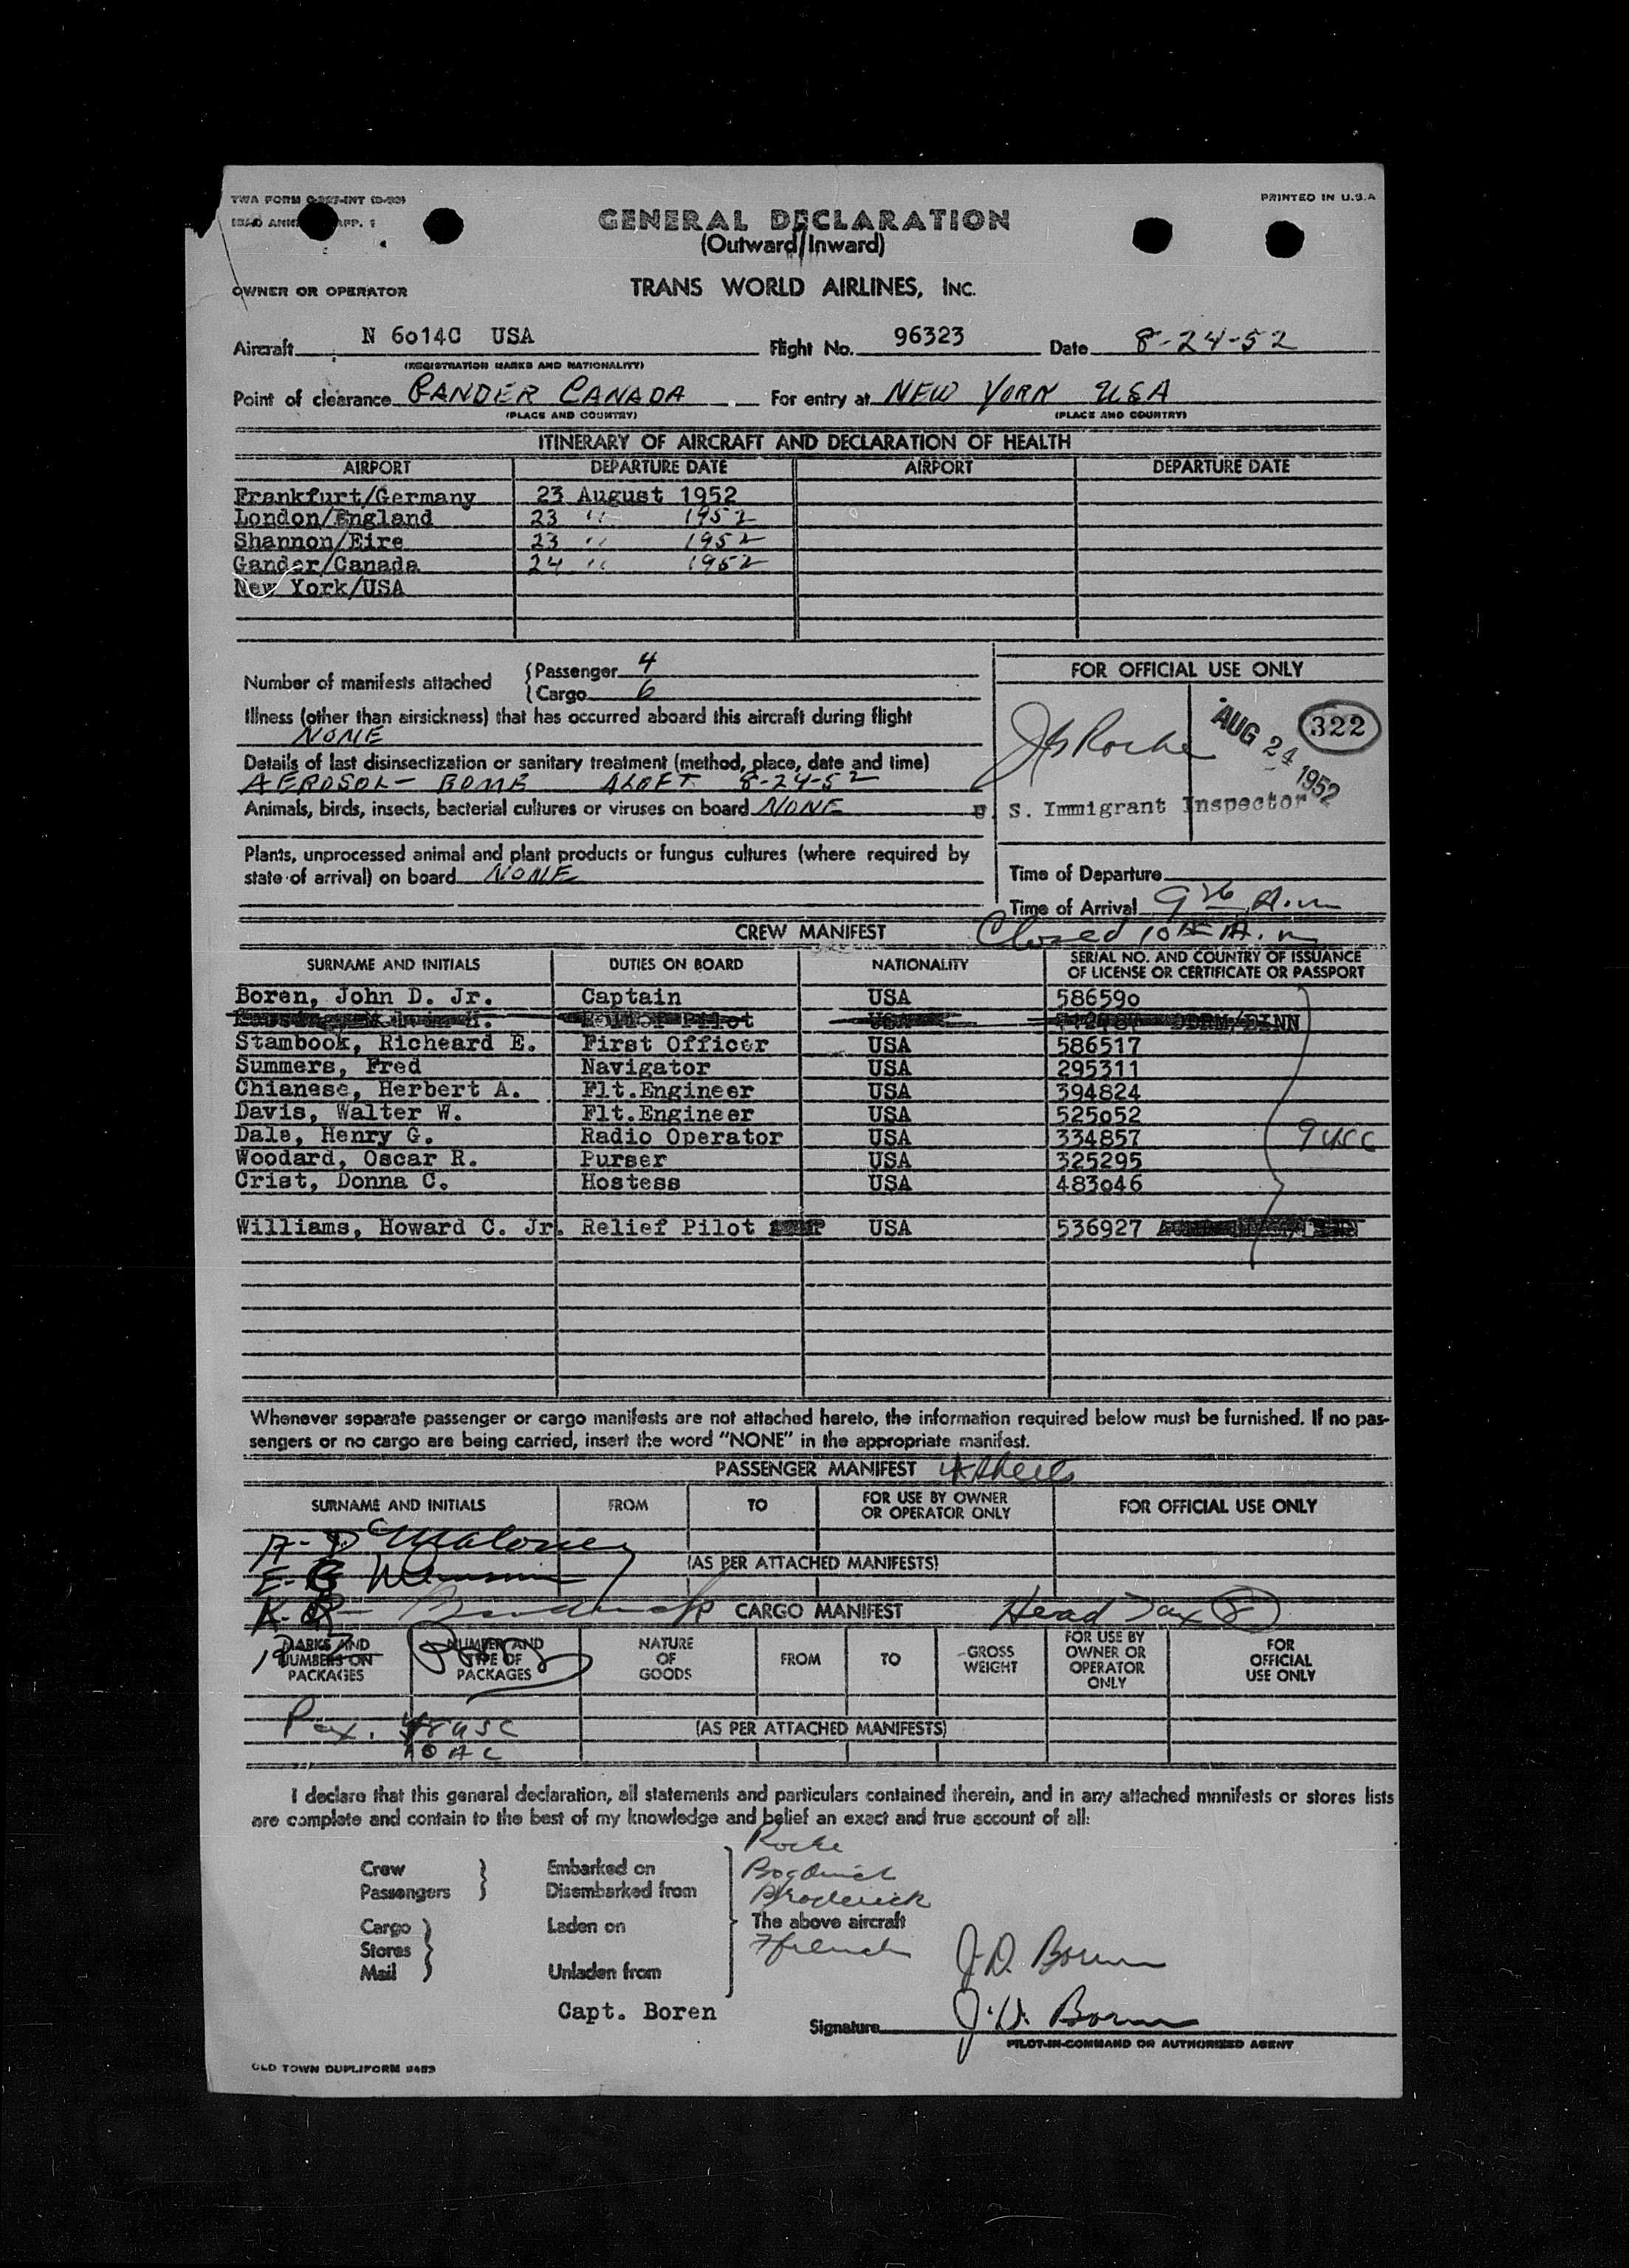 TWA FORM
PRINTED IN U.S.A
GENERAL DECLARATION
(Outward/Inward)
OWNER OR OPERATOR TRANS WORLD AIRLINES, INC.
Aircraft N 6o14C USA Flight No. 96323 Date 8-24-52
(REGISTRATION MARKS AND NATIONALITY)
Point of clearance GANDER CANADA For entry at NEW YORK USA
(PLACE AND COUNTRY) (PLACE AND COUNTRY)
ITINERARY OF AIRCRAFT AND DECLARATION OF HEALTH
AIRPORT DEPARTURE DATE AIRPORT DEPARTURE DATE
Frankfurt/Germany 23 August 1952
London/England 23 " 1952
Shannon/Eire 23 " 1952
Gander/Canada 24 " 1952
New York/USA
Number of manifests attached Passenger 4
Cargo 6
Illness (other than airsickness) that has occurred aboard this aircraft during flight
NONE
Details of last disinsectization or sanitary treatment (method, place, date and time)
AEROSOL- BOMB ALOFT 8-24-52
Animals, birds, insects, bacterial cultures or viruses on board NONE
Plants, unprocessed animal and plant products or fungus cultures (where required by
state of arrival) on board NONE
FOR OFFICIAL USE ONLY
Roche AUG 24 1952 322
U. S. Immigrant Inspector
Time of Departure
Time of Arrival 9 26 A.m
Closed 10 A.m
CREW MANIFEST
SURNAME AND INITIALS DUTIES ON BOARD NATIONALITY SERIAL NO. AND COUNTRY OF ISSUANCE
OF LICENSE OR CERTIFICATE OR PASSPORT
Boren, John D. Jr. Captain USA 58659o
Stambook, Richeard E. First Officer USA 586517
Summers, Fred Navigator USA 295311
Chianese, Herbert A. Flt.Engineer USA 394824
Davis, Walter W. Flt.Engineer USA 525o52
Dale, Henry G. Radio Operator USA 334857 9 USC
Woodard, Oscar R. Purser USA 325295
Crist, Donna C. Hostess USA 483o46
Williams, Howard C. Jr. Relief Pilot USA 536927
Whenever separate passenger or cargo manifests are not attached hereto, the information required below must be furnished. If no pas-
sengers or no cargo are being carried, insert the word "NONE" in the appropriate manifest.
PASSENGER MANIFEST 4 sheets
SURNAME AND INITIALS FROM TO FOR USE BY OWNER
OR OPERATOR ONLY FOR OFFICIAL USE ONLY
Maloney
(AS PER ATTACHED MANIFESTS)
CARGO MANIFEST Head Tax 8
MARKS AND
NUMBERS ON
PACKAGES NUMBER AND
TYPE OF
PACKAGES NATURE
OF
GOODS FROM TO GROSS
WEIGHT FOR USE BY
OWNER OR
OPERATOR
ONLY FOR
OFFICIAL
USE ONLY
Pax. 48 USC
(AS PER ATTACHED MANIFESTS)
10 AC
I declare that this general declaration, all statements and particulars contained therein, and in any attached manifests or stores lists
are complete and contain to the best of my knowledge and belief an exact and true account of all:
Roche
Crew Embarked on
Passengers Disembarked from Broderick
Cargo Laden on The above aircraft
Stores
Mail Unladen from J.D. Boren
Capt. Boren
Signature J.D. Boren
PILOT-IN-COMMAND OR AUTHORIZED AGENT
OLD TOWN DUPLIFORM